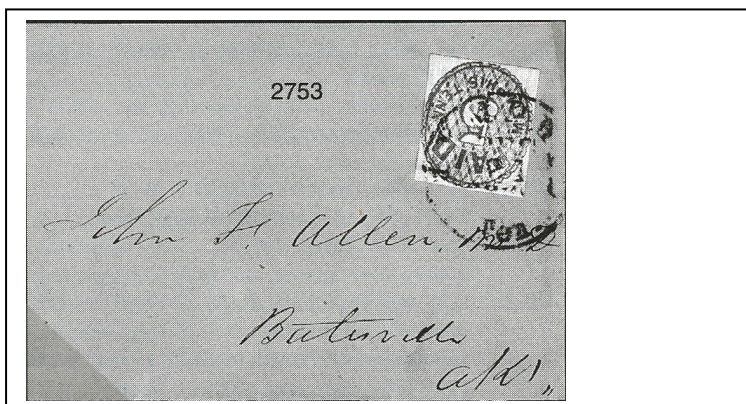 2753
PAID
John F. Allen. M D
Batesville
Aks,,